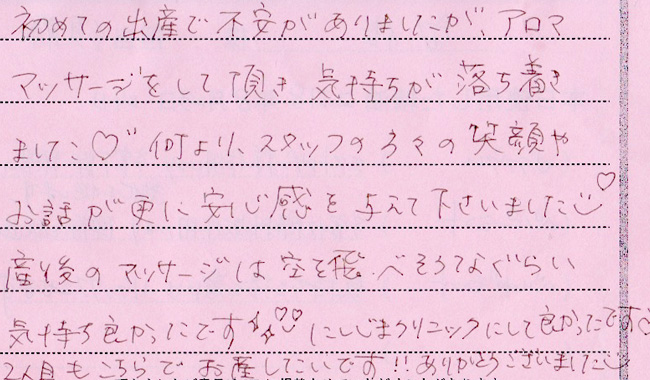 初めての出産で不安がありましたが、アロマ
マッサージをして頂き気持ちが落ち着き
ました♡" 何より、スタッフの方々の笑顔や
お話が更に安心感を与えて下さいました♡
産後のマッサージは空を飛べそうなぐらい
気持ち良かったです♡♡ にしじまクリニックにして良かったです
2人目もこちらでお産したいです!! ありがとうございました